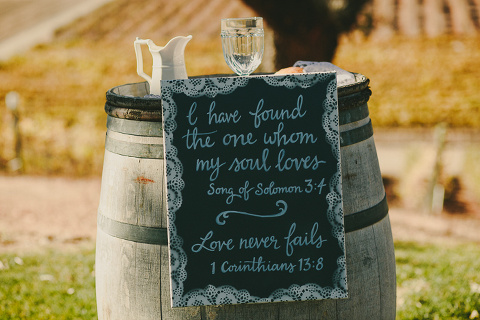 I have found
the one whom
my soul loves
Song of Solomon 3:4
Love never fails
1 Corinthians 13:8